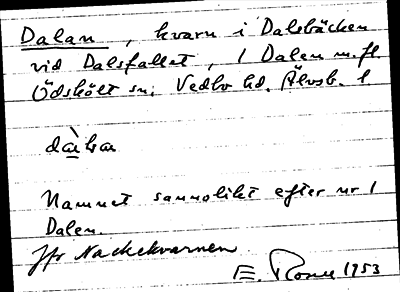 Dalan, kvarn i Dalsbäcken
vid Dalsfallet, 1 Dalen m.fl.
Ödskölt sn. Vedbo hd. Älvsb. l

Namnet sannolikt efter nr 1
Dalen.
Jfr Nackekvarnen
E. 1953